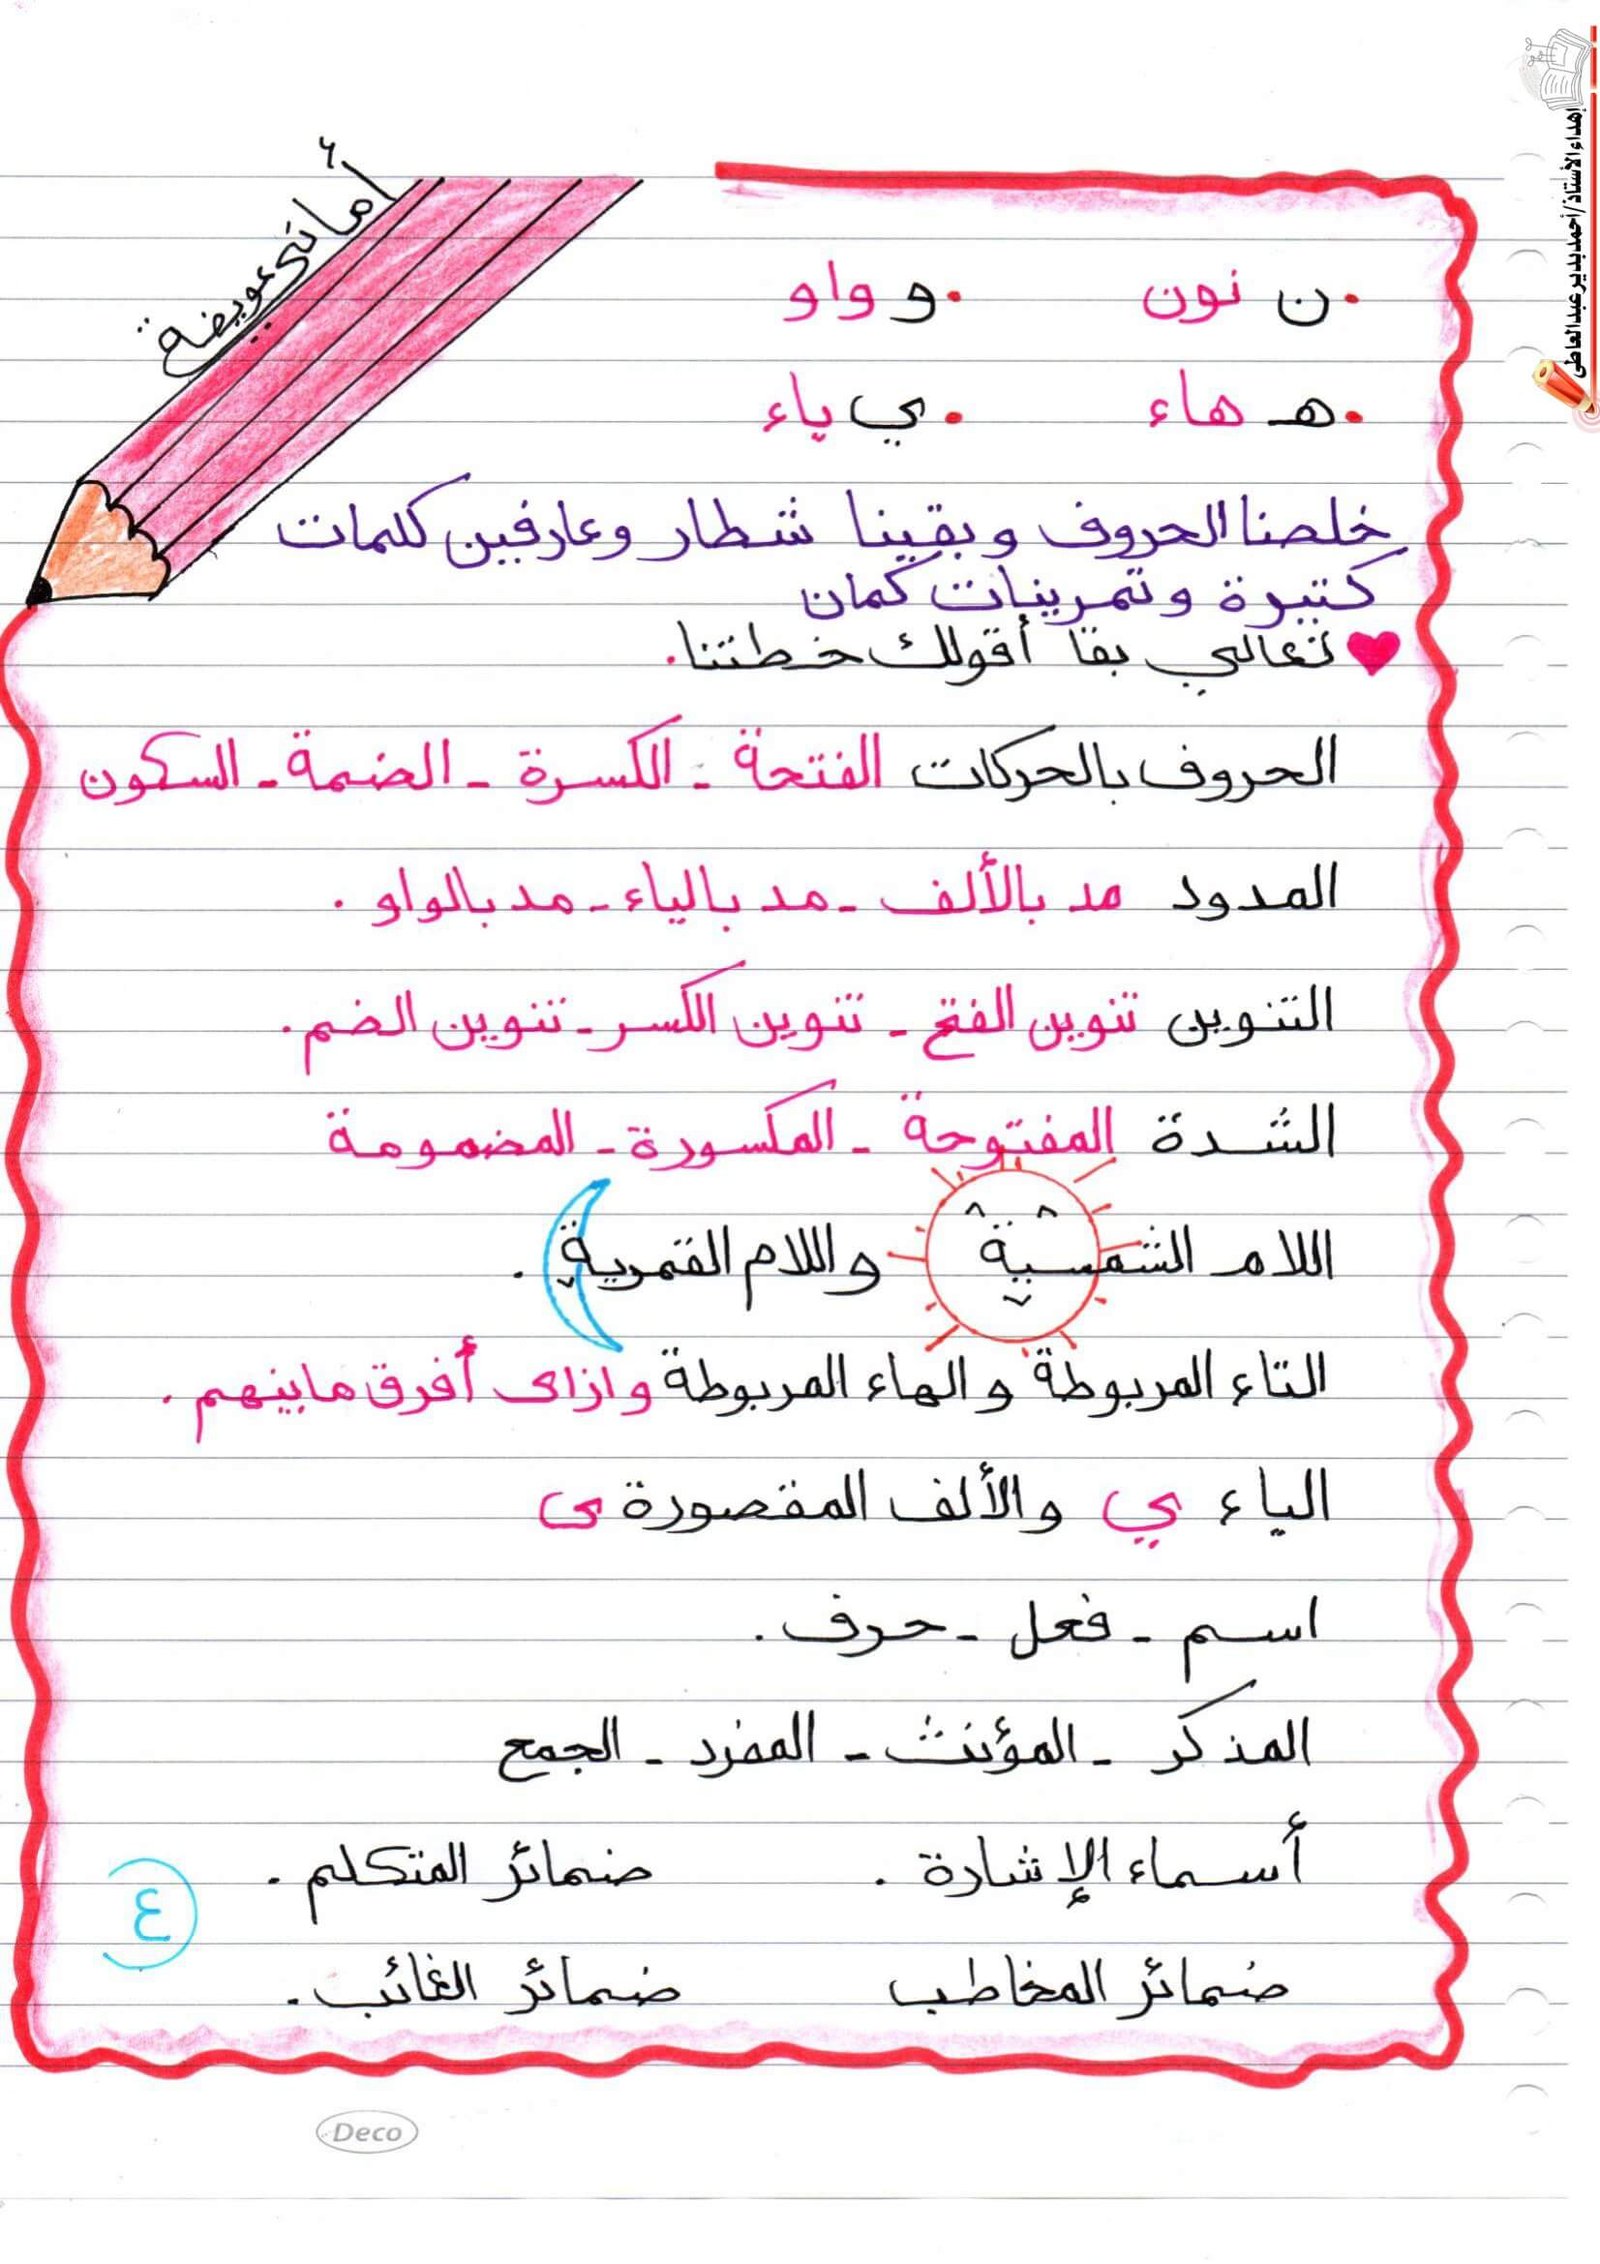 إهداء الأستاذ/أحمد بدير عبد العاطى
أ/أماني عويضة
• ن نون • و واو
• هـ هاء • ي ياء
خلصنا الحروف وبقينا شطار وعارفين كلمات
كتيرة وتمرينات كمان
تعالي بقا أقولك خطتنا.
الحروف بالحركات الفتحة - الكسرة - الضمة - السكون
المدود مد بالألف - مد بالياء - مد بالواو .
التنوين تنوين الفتح - تنوين الكسر - تنوين الضم .
الشدة المفتوحة - المكسورة - المضمومة
اللام الشمسية واللام القمرية .
التاء المربوطة والهاء المربوطة وازاى أفرق مابينهم .
الياء ي والألف المقصورة ى
اسم - فعل - حرف .
المذكر - المؤنث - المفرد - الجمع
أسماء الإشارة . ضمائر المتكلم .
ضمائر المخاطب ضمائر الغائب .
٤
Deco